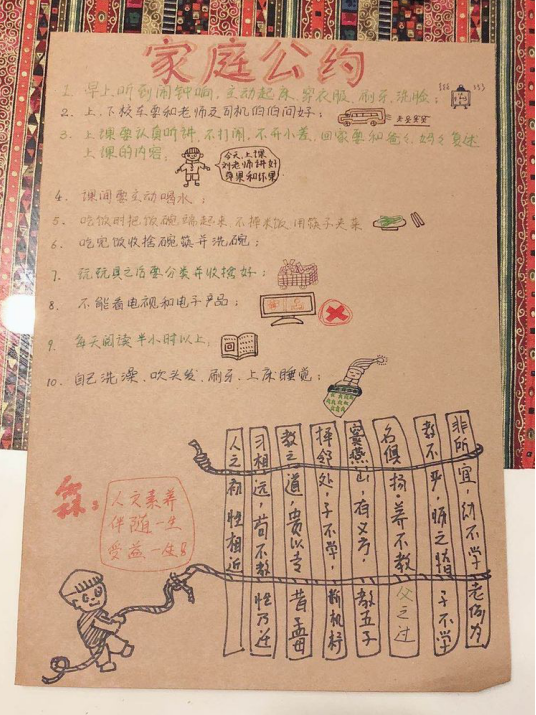 家庭公约
1. 早上听到闹钟响,主动起床、穿衣服、刷牙、洗脸;
2. 上、下校车要和老师及司机伯伯问好;
3. 上课要认真听讲、不打闹、不开小差、回家要和爸く、妈く复述
上课的内容。
今天,上课
刘老师讲好
苹果和坏果
4. 课间要主动喝水;
5. 吃饭时把饭碗端起来、不掉米饭、用筷子夹菜
6. 吃完饭收拾碗筷并洗碗;
7. 玩玩具之后要分类并收拾好;
8. 不能看电视和电子产品;
9. 每天阅读半小时以上;
10. 自己洗澡、吹头发、刷牙、上床睡觉;
森:
人文素养
伴随一生
受益一生!
人之初 性相近
习相远,苟不教 性乃迁
教之道,贵以专 昔孟母
择邻处,子不学,断机杼
窦燕山,有义方,教五子
名俱扬,养不教 父之过
教不严,师之惰 子不学
非所宜,幼不学 老何为